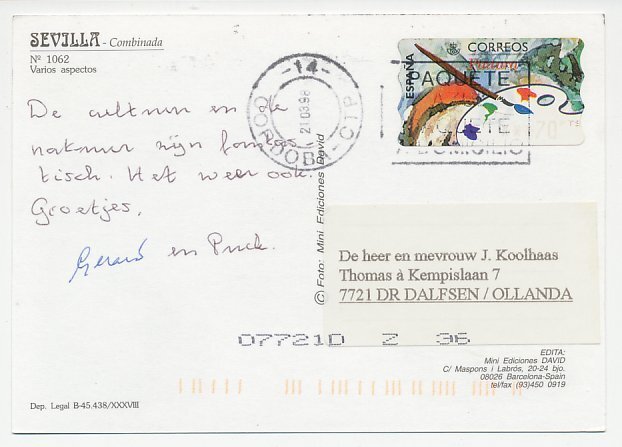 SEVILLA - Combinada
Nº 1062
Varios aspectos
De cultuur en de
natuur zijn fantas
tisch. Het weer ook.
Groetjes,
Gerard en Puck.
-14-
21 03 98
CORDOBA - CTP
CORREOS
ESPAÑA
Pintura
PAQUETE
PAQUETE
DOMICILIO
© Foto: Mini Ediciones David
De heer en mevrouw J. Koolhaas
Thomas à Kempislaan 7
7721 DR DALFSEN / OLLANDA
077210 Z 36
EDITA:
Mini Ediciones DAVID
C/ Maspons i Labrós, 20-24 bjo.
08026 Barcelona-Spain
tel/fax (93)450 0919
Dep. Legal B-45.438/XXXVIII